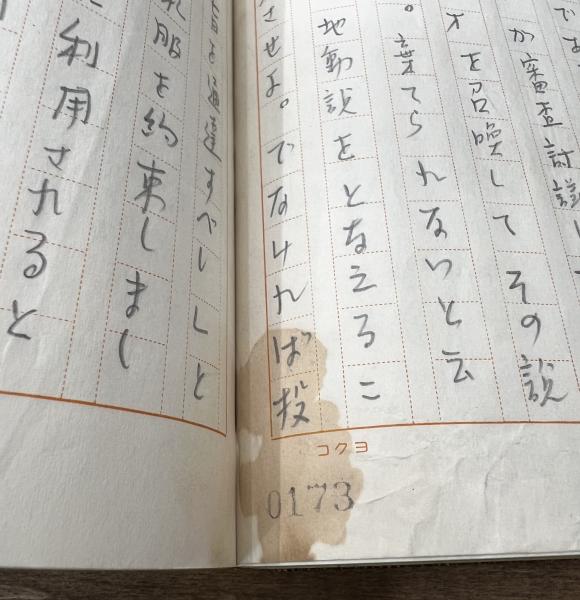 か審査討議し
オを召喚してその説
。棄てられないと云
地動説をとなえるこ
させよ。でなければ投
を通達すべし」と
服を約束しまし
利用されると
コクヨ
0173